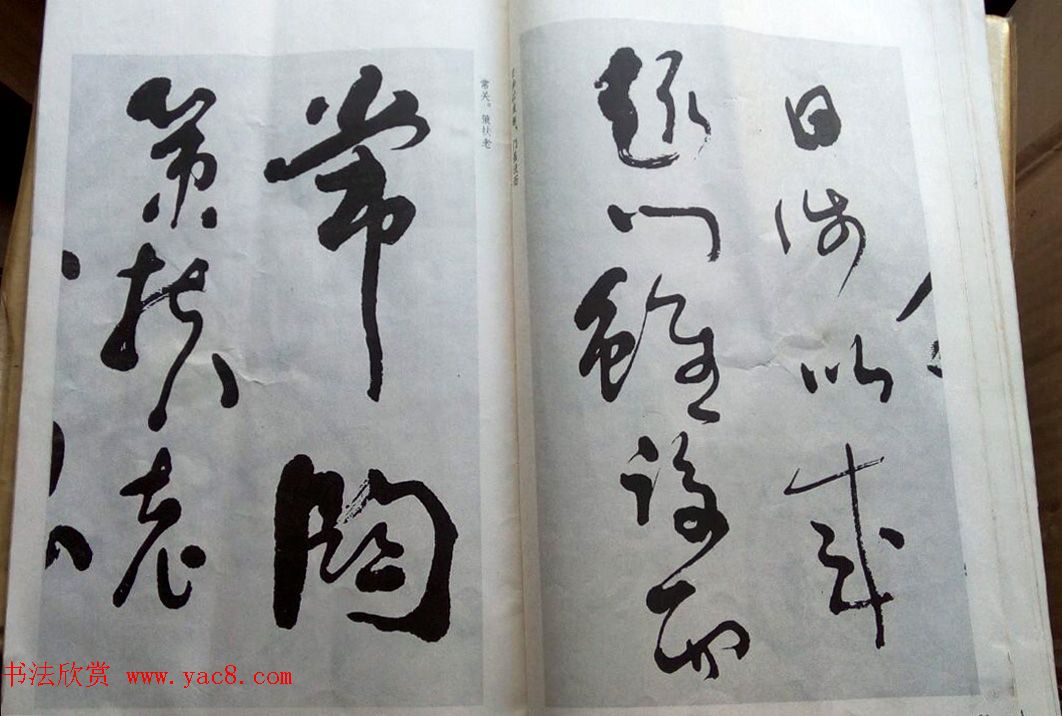 日涉以成
趣门雖設而
常關
策扶老
常关。策扶老
书法欣赏 www.yac8.com